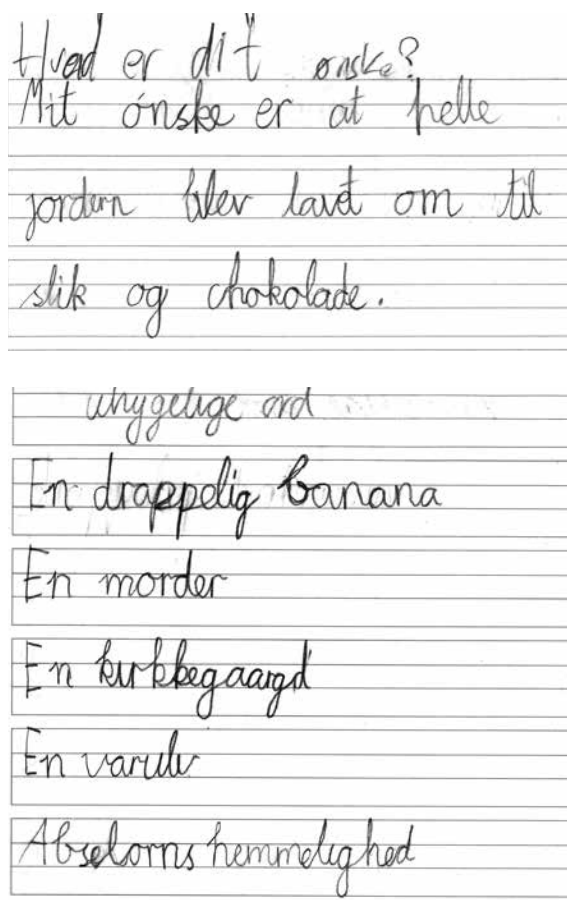 Hvad er dit ønske?
Mit ønske er at helle
jordern blev lavet om til
slik og chokolade.
uhygelige ord
En drappelig banana
En morder
En kirkkegaargd
En varulv
Abselorns hemmelighed